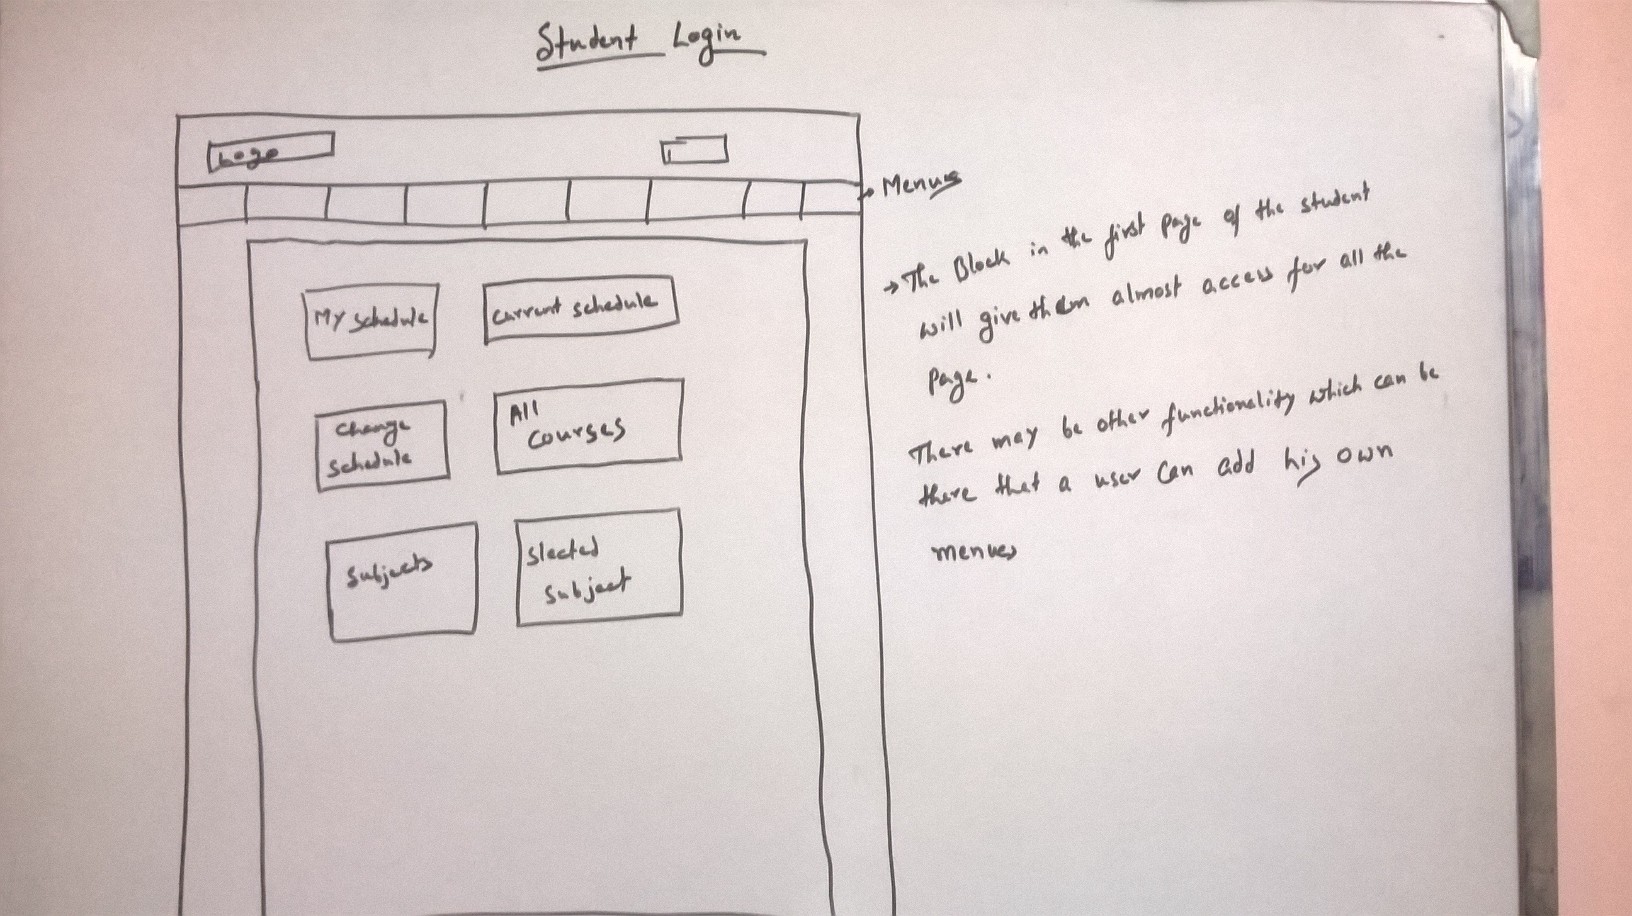 Student Login
Logo
→ Menus
My schedule
current schedule
change
schedule
All
courses
Subjects
Slected
Subject
→ The Block in the first page of the student
will give them almost access for all the
page.
There may be other functionality which can be
there that a user can add his own
menues